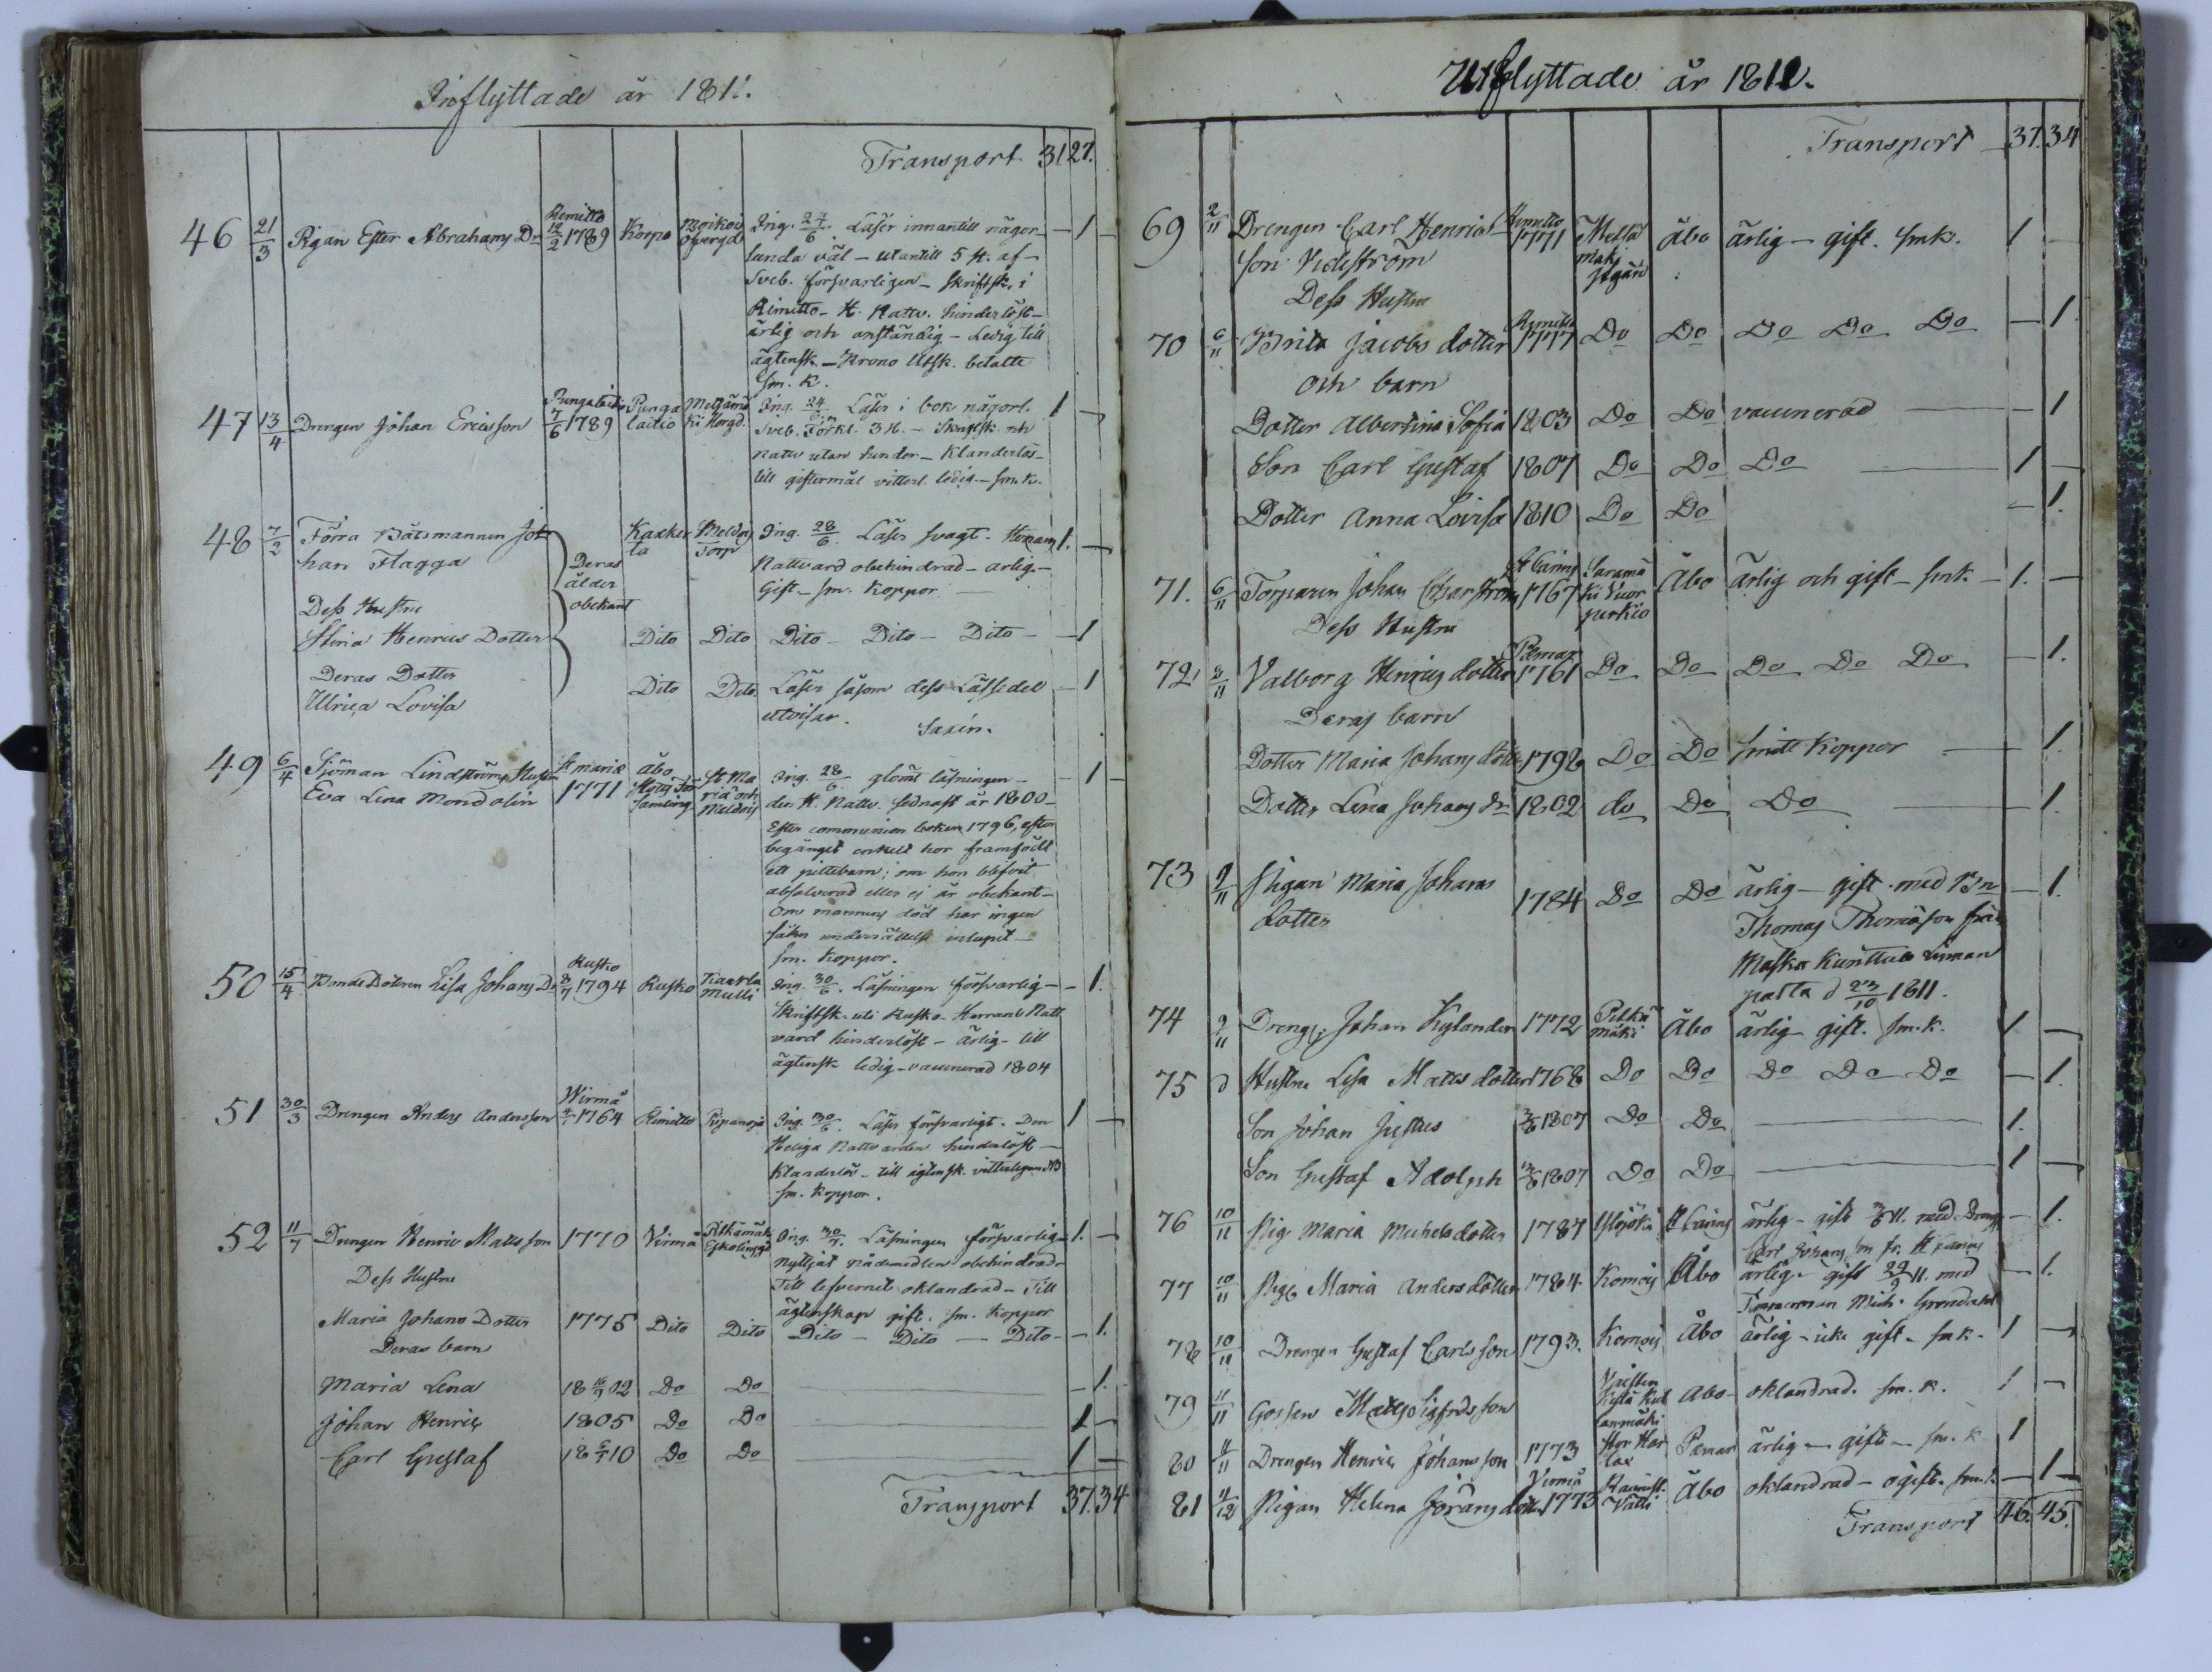 Inflyttade år 1811.
Transport 31. 27.
46 21/3 Pigan Ester Abrahams Dr Rimitto 12/2 1789 Korpo Moikois öfvergd Ing. 24/6. Läser innantill någor- — 1 —
lunda väl - utantill 5 st. af
Sveb. försvarligen - skriftsk. i
Rimitto - H. Nattv. hinderlöst -
ärlig och anständig - Ledig till
ägtensk. - Krono Utsk. betalte
Sm. K.
47 13/4 Drengen Johan Ericsson 7/6 1789 Punga laitio Ing. 24/6 Läser i bok någorl. 1 —
Sveb. Förkl. 3 st. - Skriftsk. och
nattv utan hinder - Klanderlös -
till giftermål vitterl. ledig - sm. K.
48 7/2 Förra Båtsmannen Jo- Kaxker ta Meldois Torp Ing. 28/6. Läser svagt. 1. —
han Flagga Deras ålder obekant Nattvard obehindrad - ärlig -
Gift - sm. Koppor
Dess Hustru
Stina Henrics Dotter Dito Dito Dito - Dito - Dito - — 1
Deras Dotter Dito Dito Läser såsom dess Låfsedel — 1
Ulrica Lovisa utvisar. Saxén.
49 6/4 Sjöman Lindströms Hustru St Mariæ Åbo St Ma riæ och Meldois Ing. 28/6. glömt läsningen - — 1 —
Eva Lena Mondolin 1771 den H. Nattv. sednast år 1800 -
Efter communion boken 1796, efter
begånget enkelt hor framfödt
ett pittebarn; om hon blifvit
absolverad eller ej är obekant -
Om mannens död har ingen
säker underrättelse inlupit -
sm. Koppor.
50 15/4 Bonde Dottren Lisa Johans Dr Rusko 8/7 1794 Rusko Kaerla Mulli Ing. 30/6. Läsningen försvarlig - — 1.
Skriftsk. uti Rusko - Herrans Natt
vard hinderlöst - ärlig - till
ägtensk. ledig - vaccinerad 1804
51 30/3 Drengen Anders Andersson Wirmå 1764 Rimitto Ing. 30/6. Läser försvarligt. Den 1 —
Heliga Nattvarden hinderlöst -
Klanderlös - till ägtensk. vitterligen
sm. Koppor.
52 11/7 Drengen Henric Matts son 1770 Virmå Pitkämäki Ing. 30/7. Läsningen försvarlig 1. —
nyttjat nådemedlen obehindrad
Dess Hustru Till lefvernet oklandrad - Till
ägtenskap gift. sm. Koppor
Maria Johans Dotter 1775 Dito Dito Dito - Dito - Dito - — 1.
Deras barn
Maria Lena 18 16/7 02 Do Do — 1.
Johan Henric 1805 Do Do 1 —
Carl Gustaf 18 6/7 10 Do Do 1 —
Transport 37. 34
Utflyttade år 1811.
Transport 37. 34
69 2/11 Drengen Carl Henrics Rimitto 1771 Åbo ärlig - gift. smk. 1 —
son Videström
Dess Hustru
70 6/11 Brita Jacobs dotter Rimitto 1777 Do Do Do Do Do — 1.
och barn
Dotter Albertina Sofia 1803 Do Do vaccinerad — 1
Son Carl Gustaf 1807 Do Do Do 1 —
Dotter Anna Lovisa 1810 Do Do — 1.
71. 6/11 Torparen Johan Charström St Carins 1767 Saramä ki Åbo ärlig och gift - smk - 1. —
Dess Hustru
72 8/11 Valborg Henrics dotter Pemar 1761 Do Do Do Do Do — 1.
Deras barn
Dotter Maria Johans dotter 1798 Do Do smitt Koppor 1.
Dotter Lena Johans Dr 1802 do Do Do 1.
73 9/11 Pigan Maria Johans 1784 Do Do ärlig - gift med Bn — 1.
dotter Thomas Thomasson från
Masko Kunttula Liman
patta d 23/10 1811.
74 9/11 Dreng. Johan Kylander 1772 Pitkä mäki Åbo ärlig gift. sm. k. 1 —
75 d Hustru Lisa Matts dotter 1768 Do Do Do Do Do — 1.
Son Johan Justus 1807 Do Do 1.
Son Gustaf Adolph 1807 Do Do 1 —
76 10/11 Pig Maria Michels dotter 1787 St Carins ärlig - gift med Dreng — 1.
Carl Johans son fr. St Carins
77 10/11 Pig. Maria Anders dotter 1784 Komois Åbo ärlig - gift 29/9 11. med — 1.
Timmerman Mich. Grondahl
78 10/11 Drengen Gustaf Carlsson 1793. Komois Åbo ärlig - icke gift - sm k - 1 —
79 11/11 Gossen Matts Sigfrids son Åbo oklandrad. sm. K. 1 —
80 11/11 Drengen Henric Johans son 1773 Stor Har lax Pemar ärlig - gift - sm. k 1
81 11/12 Pigan Helena Jörans dotter Virmo 1773 Åbo oklandrad - ogift. sm. k. — 1 —
Transport 46. 45.